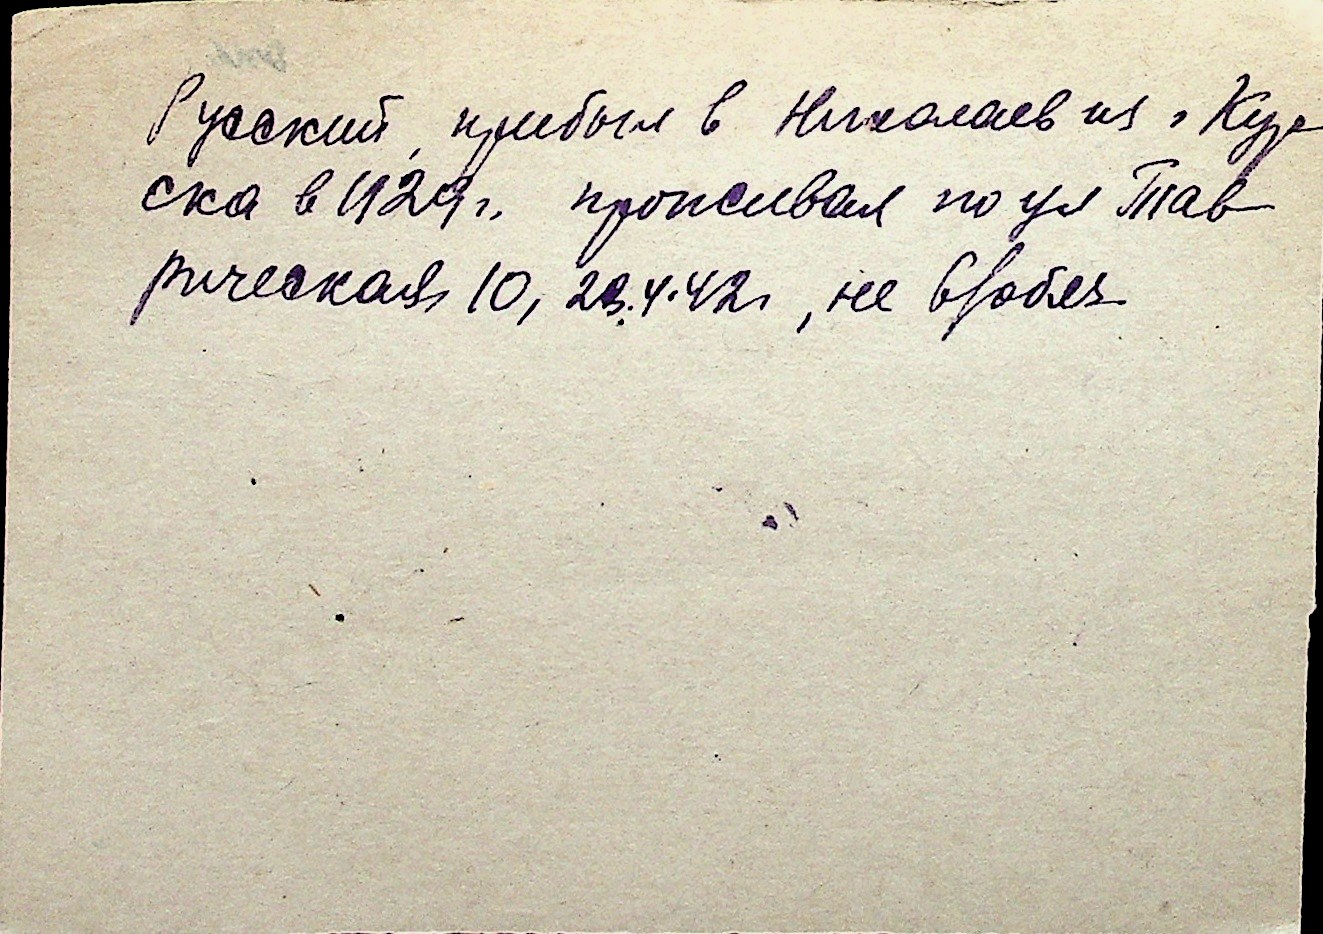 Русский, прибыл в Николаев из г Кур
ска в 1929г. проживал по ул Тав
рическая 10, 23.4.42г, не